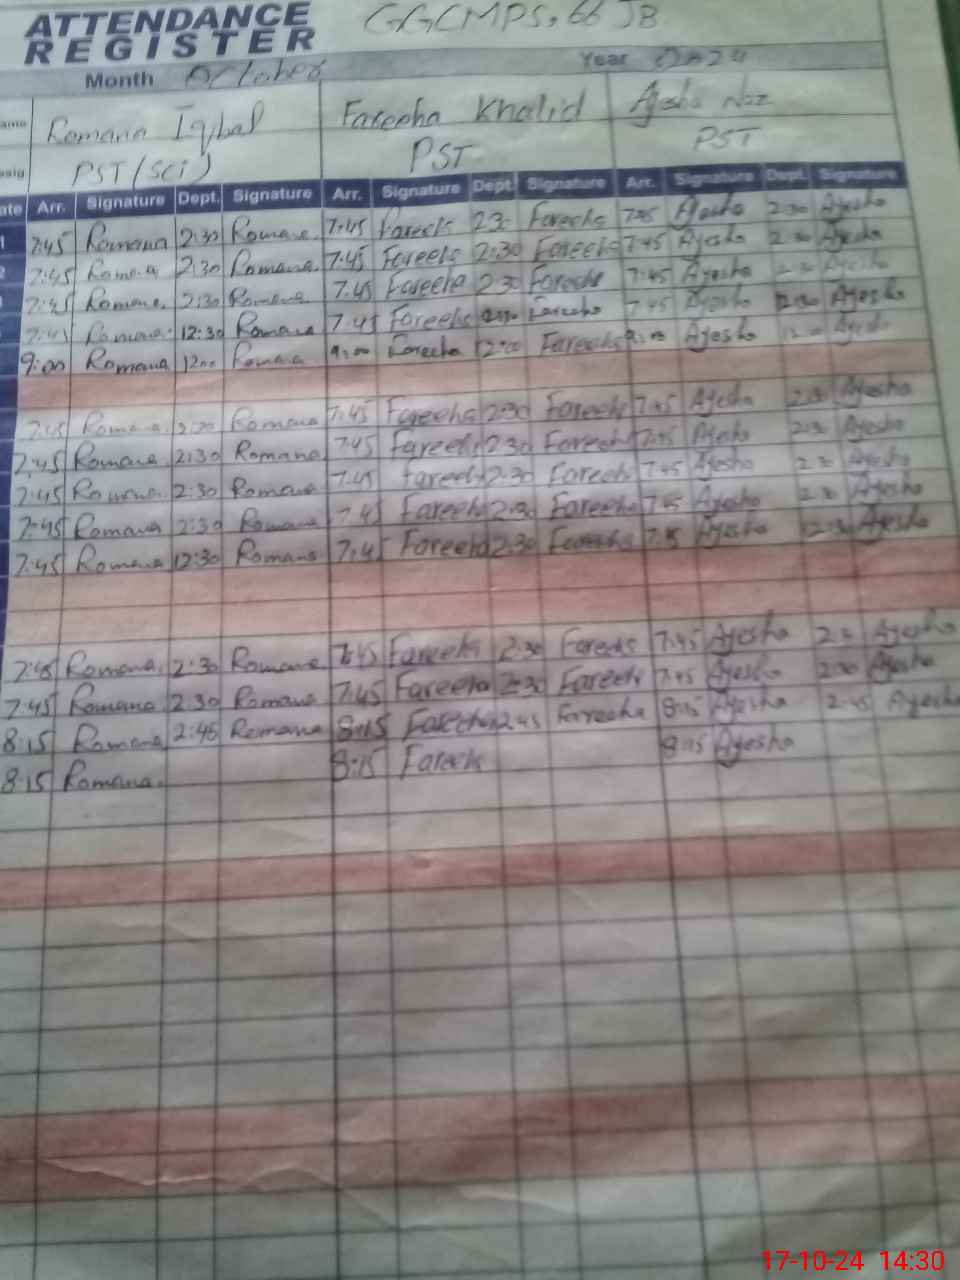 ATTENDANCE GGCMPS, 66 JB
REGISTER
Month October Year 2024
Romana Iqbal Fareeha Khalid Ayesha Naz
PST (Sci) PST PST
Arr. Signature Dept. Signature Arr. Signature Dept. Signature Arr. Signature Dept. Signature
7:45 Romana 2:30 Romana 7:45 Fareeha 2:30 Fareeha 7:45 Ayesha 2:30 Ayesha
7:45 Romana 2:30 Romana 7:45 Fareeha 2:30 Fareeha 7:45 Ayesha 2:30 Ayesha
7:45 Romana 2:30 Romana 7:45 Fareeha 2:30 Fareeha 7:45 Ayesha Ayesha
7:45 Romana 12:30 Romana 7:45 Fareeha Fareeha 7:45 Ayesha 12:30 Ayesha
9:00 Romana 12:00 Romana 9:00 Fareeha 12:00 Fareeha 9:00 Ayesha Ayesha
7:45 Romana 2:30 Romana 7:45 Fareeha 2:30 Fareeha 7:45 Ayesha 2:30 Ayesha
7:45 Romana 2:30 Romana 7:45 Fareeha 2:30 Fareeha 7:45 Ayesha 2:30 Ayesha
7:45 Romana 2:30 Romana 7:45 Fareeha 2:30 Fareeha 7:45 Ayesha 2:30 Ayesha
7:45 Romana 2:30 Romana 7:45 Fareeha 2:30 Fareeha 7:45 Ayesha 2:30 Ayesha
7:45 Romana 12:30 Romana 7:45 Fareeha 12:30 Fareeha 7:45 Ayesha 12:30 Ayesha
7:45 Romana 2:30 Romana 7:45 Fareeha 2:30 Fareeha 7:45 Ayesha 2:30 Ayesha
7:45 Romana 2:30 Romana 7:45 Fareeha 2:30 Fareeha 7:45 Ayesha 2:30 Ayesha
8:15 Romana 2:45 Romana 8:15 Fareeha 2:45 Fareeha 8:15 Ayesha 2:45 Ayesha
8:15 Romana 8:15 Fareeha 8:15 Ayesha
17-10-24 14:30